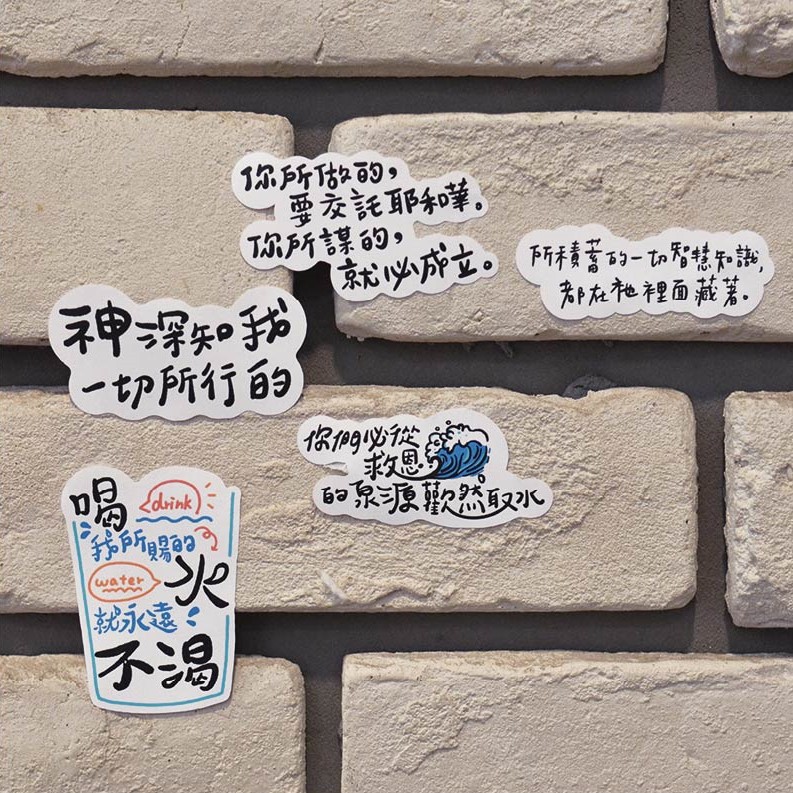 你所做的，
要交託耶和華。
你所謀的，
就必成立。
所積蓄的一切智慧知識，
都在祂裡面藏著。
神深知我
一切所行的
你們必從
救恩
的泉源歡然取水
喝 drink
我所賜的
water 水
就永遠
不渴